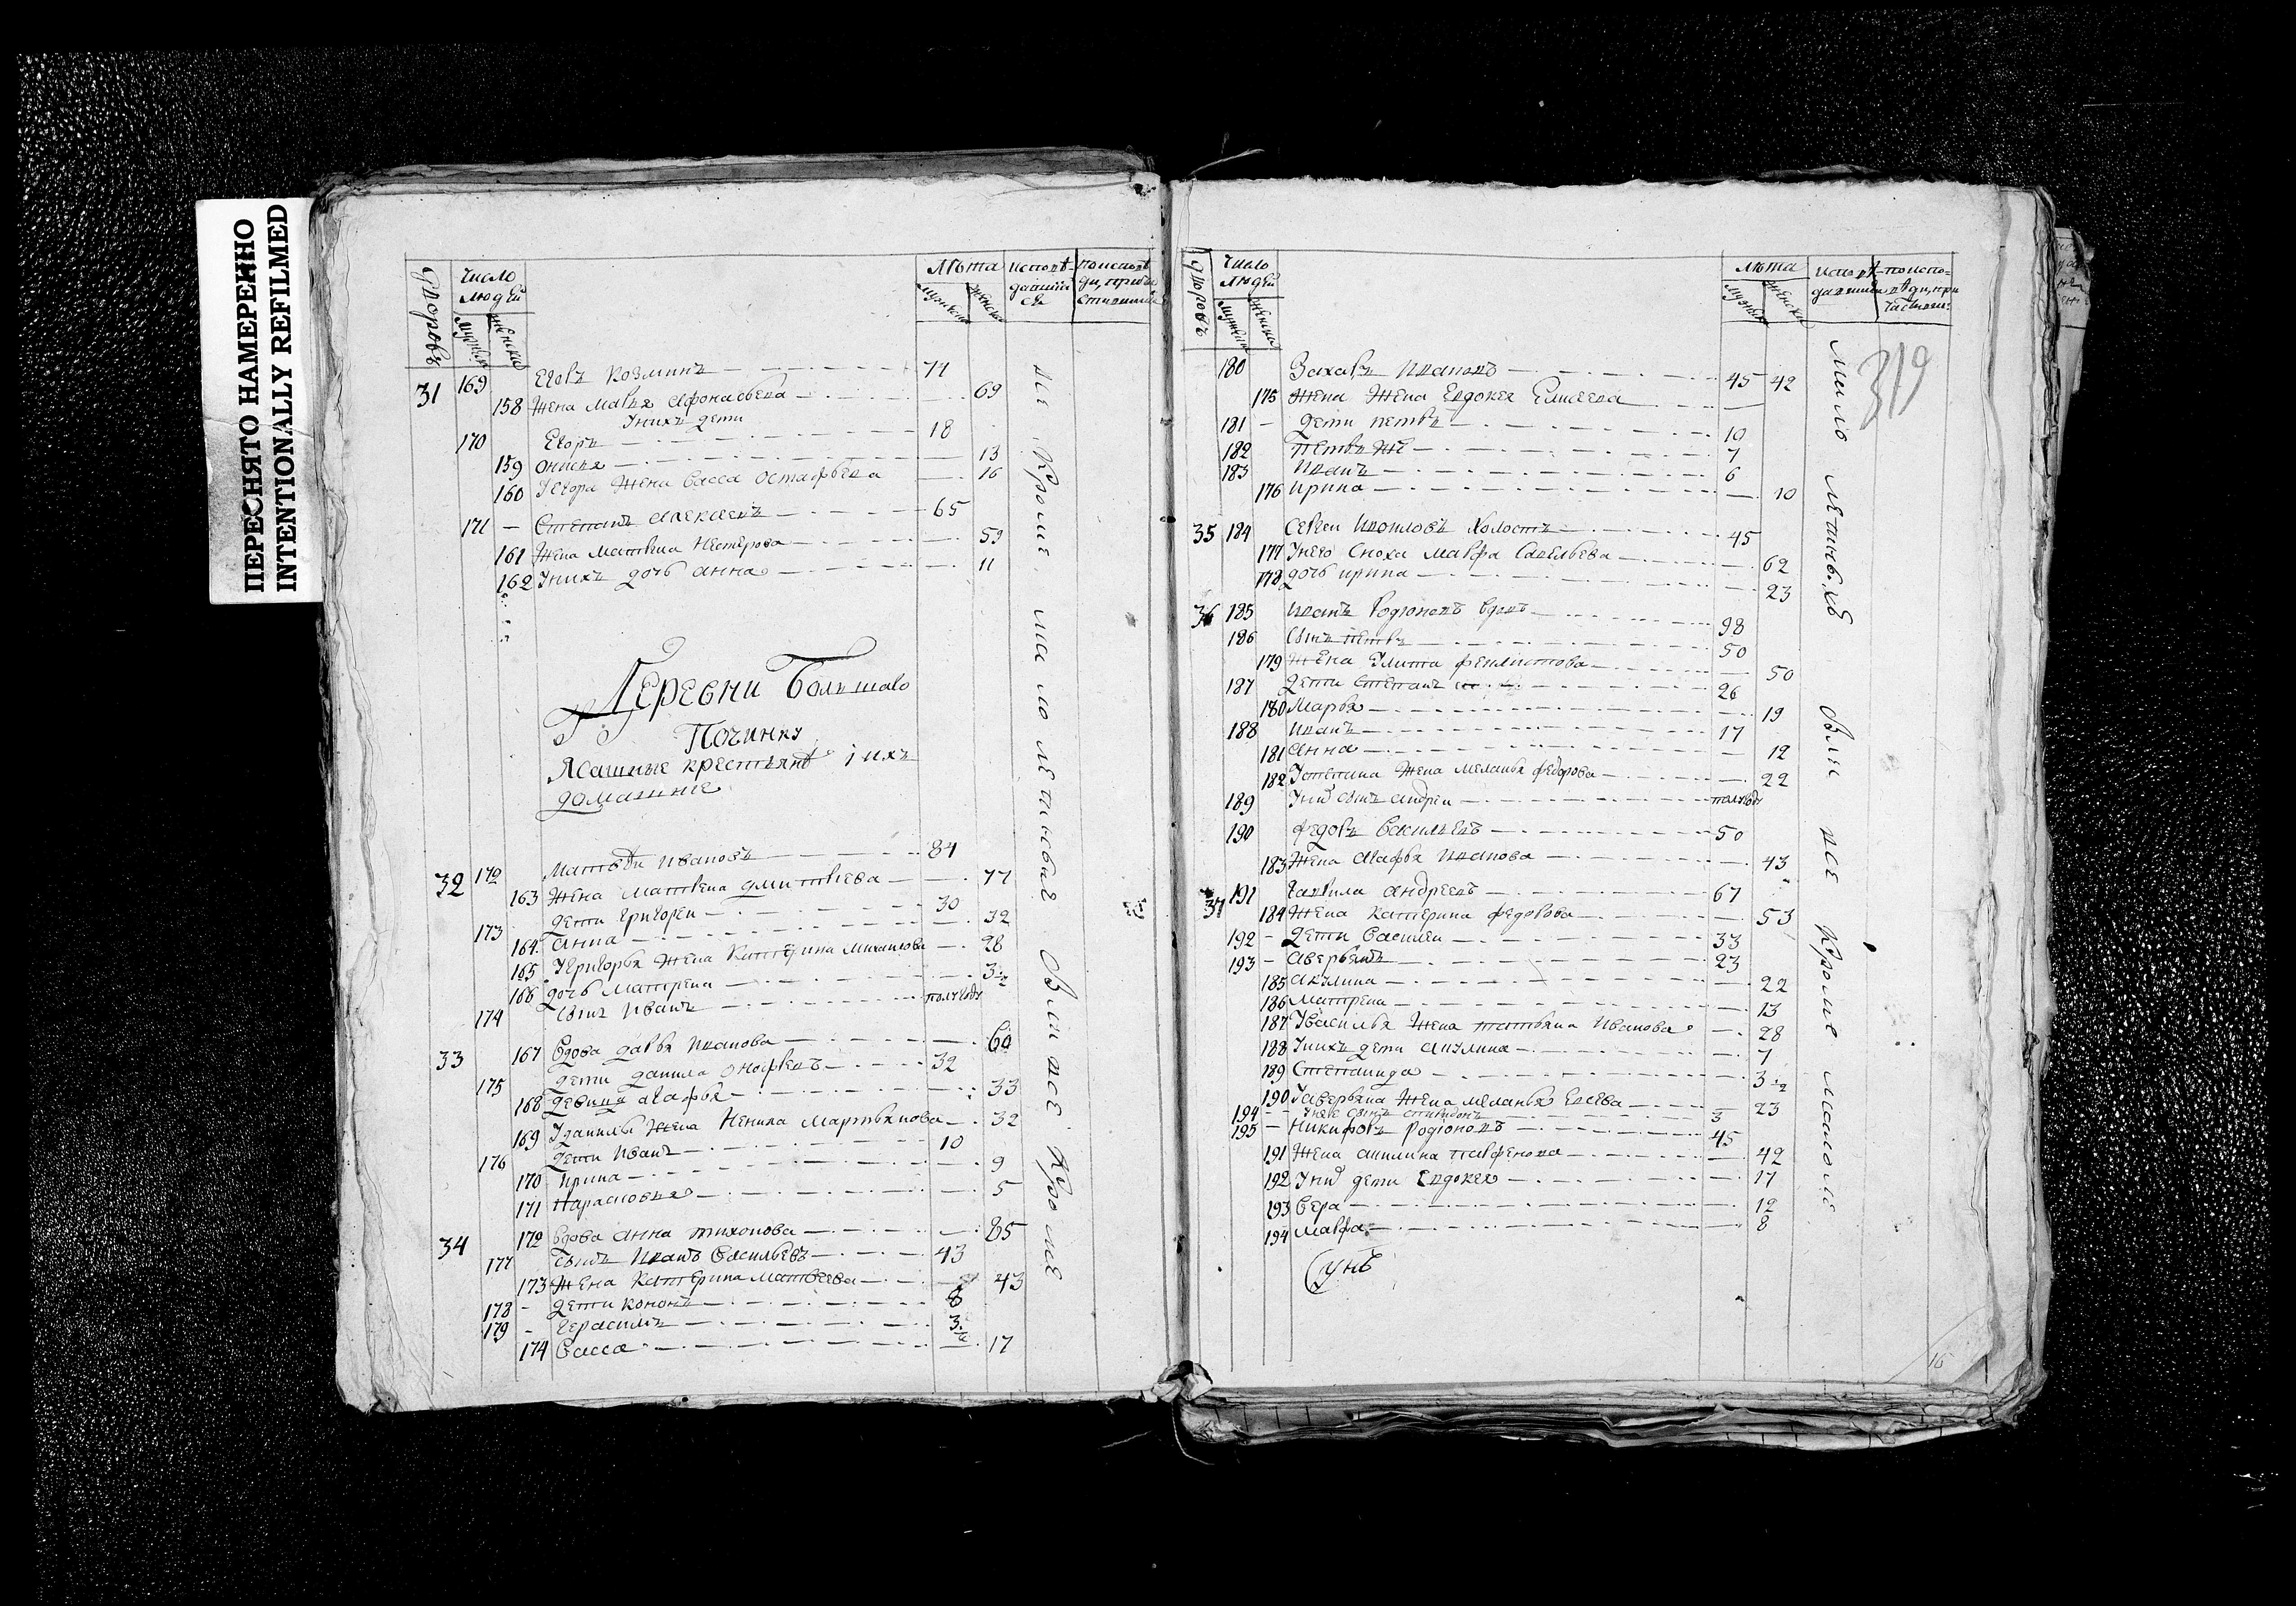 ПЕРЕСНЯТО НАМЕРЕННО
INTENTIONALLY REFILMED
дворовъ
Число людей
мужеска
женска
Лѣта
мужеска
женска
исповѣдавшися
31 169 Егоръ Козминъ 71
158 Жена Марья Афонасьева 69
Унихъ дети
170 Егоръ 18
159 Онисья 13
160 УЕгора Жена Васса Остафьева 16
171 Степанъ Алексеевъ 65
161 Жена Матрена Нестерова 59
162 Унихъ дочь Анна 11
Деревни Большаго
Починку
Ясашные крестьянѣ і ихъ
домашние
32 172 Матвѣй Ивановъ 84
163 Жена Матрена Дмитриева 77
173 Дети Григореи 30
164 Анна 32
165 УГригорья Жена Катерина Михаилова 28
166 Дочь Матрена 3 1/2
174 Сынъ Иванъ полугоду
33 167 Вдова Дарья Иванова 60
175 Дети Данила Онофревъ 32
168 Девица Агафья 33
169 УДанилы Жена Ненила Мартьянова 32
176 Дети Иванъ 10
170 Ирина 9
171 Парасковья 5
34 172 Вдова Анна Тихонова 85
177 Сынъ Иванъ Васильевъ 43
173 Жена Катерина Матвеева 43
178 Дети Кононъ 8
179 Герасимъ 3 1/2
174 Васса 17
все Кроме малолетныхъ Были все Кроме
дворовъ
Число людей
мужеска
женска
лѣта
мужеска
женска
319
180 Захаръ Ивановъ 45
175 Жена Жена Евдокея Елисеева 42
181 Дети Петръ 10
182 Петръ Же 7
183 Иванъ 6
176 Ирина 10
35 184 Сергеи Изотловъ Холостъ 45
177 Унево Сноха Мавра Савельева 62
178 Дочь Ирина 23
36 185 Иванъ Родіоновъ Вдовъ 98
186 Сынъ Петръ 50
179 Жена Улита Феклистова 50
187 Дети Степанъ 26
180 Марья 19
188 Иванъ 17
181 Анна 12
182 УСтепана Жена Меланья Федорова 22
189 Унихъ сынъ Андреи полугоду
190 Федоръ Васильевъ 50
183 Жена Агафья Иванова 43
37 191 Гаврила Андреевъ 67
184 Жена Катерина Федорова 53
192 Дети Василеи 33
193 Аверьянъ 23
185 Акулина 22
186 Матрена 13
187 УВасилья Жена Татьяна Иванова 28
188 Унихъ дети Акулина 7
189 Степанида 3 1/2
190 УАверьяна Жена Меланья Евсева 23
194 Унево сынъ Спиридонъ 3
195 Никифоръ Родіоновъ 45
191 Жена Акилина Парфенова 42
192 Унихъ дети Евдокея 17
193 Вера 12
194 Мавра 8
16